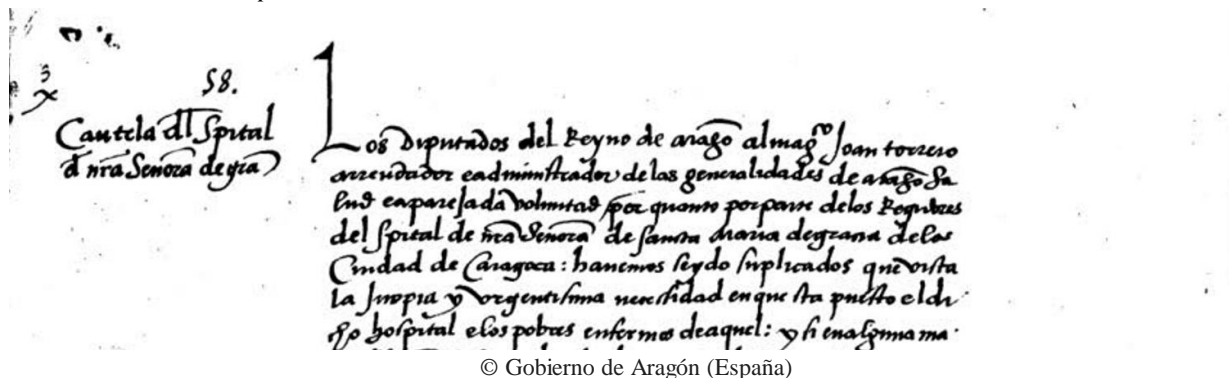 3
x
58.
Cautela dl Spital
d nra Senora de gra
Los Diputados del Reyno de arago al magco Joan torrero
arrendador e administrador de las generalidades de arago sa
lud e aparejada voluntad / por quanto por parte delos Regidores
del spital de nra Senora de sancta maria de gracia dela
Ciudad de Caragoca : hauemos seydo suplicados que vista
la Inopia y vrgentisima necessidad en que sta puesto el di
cho hospital e los pobres enfermos de aquel : y si en alguna ma
© Gobierno de Aragón (España)